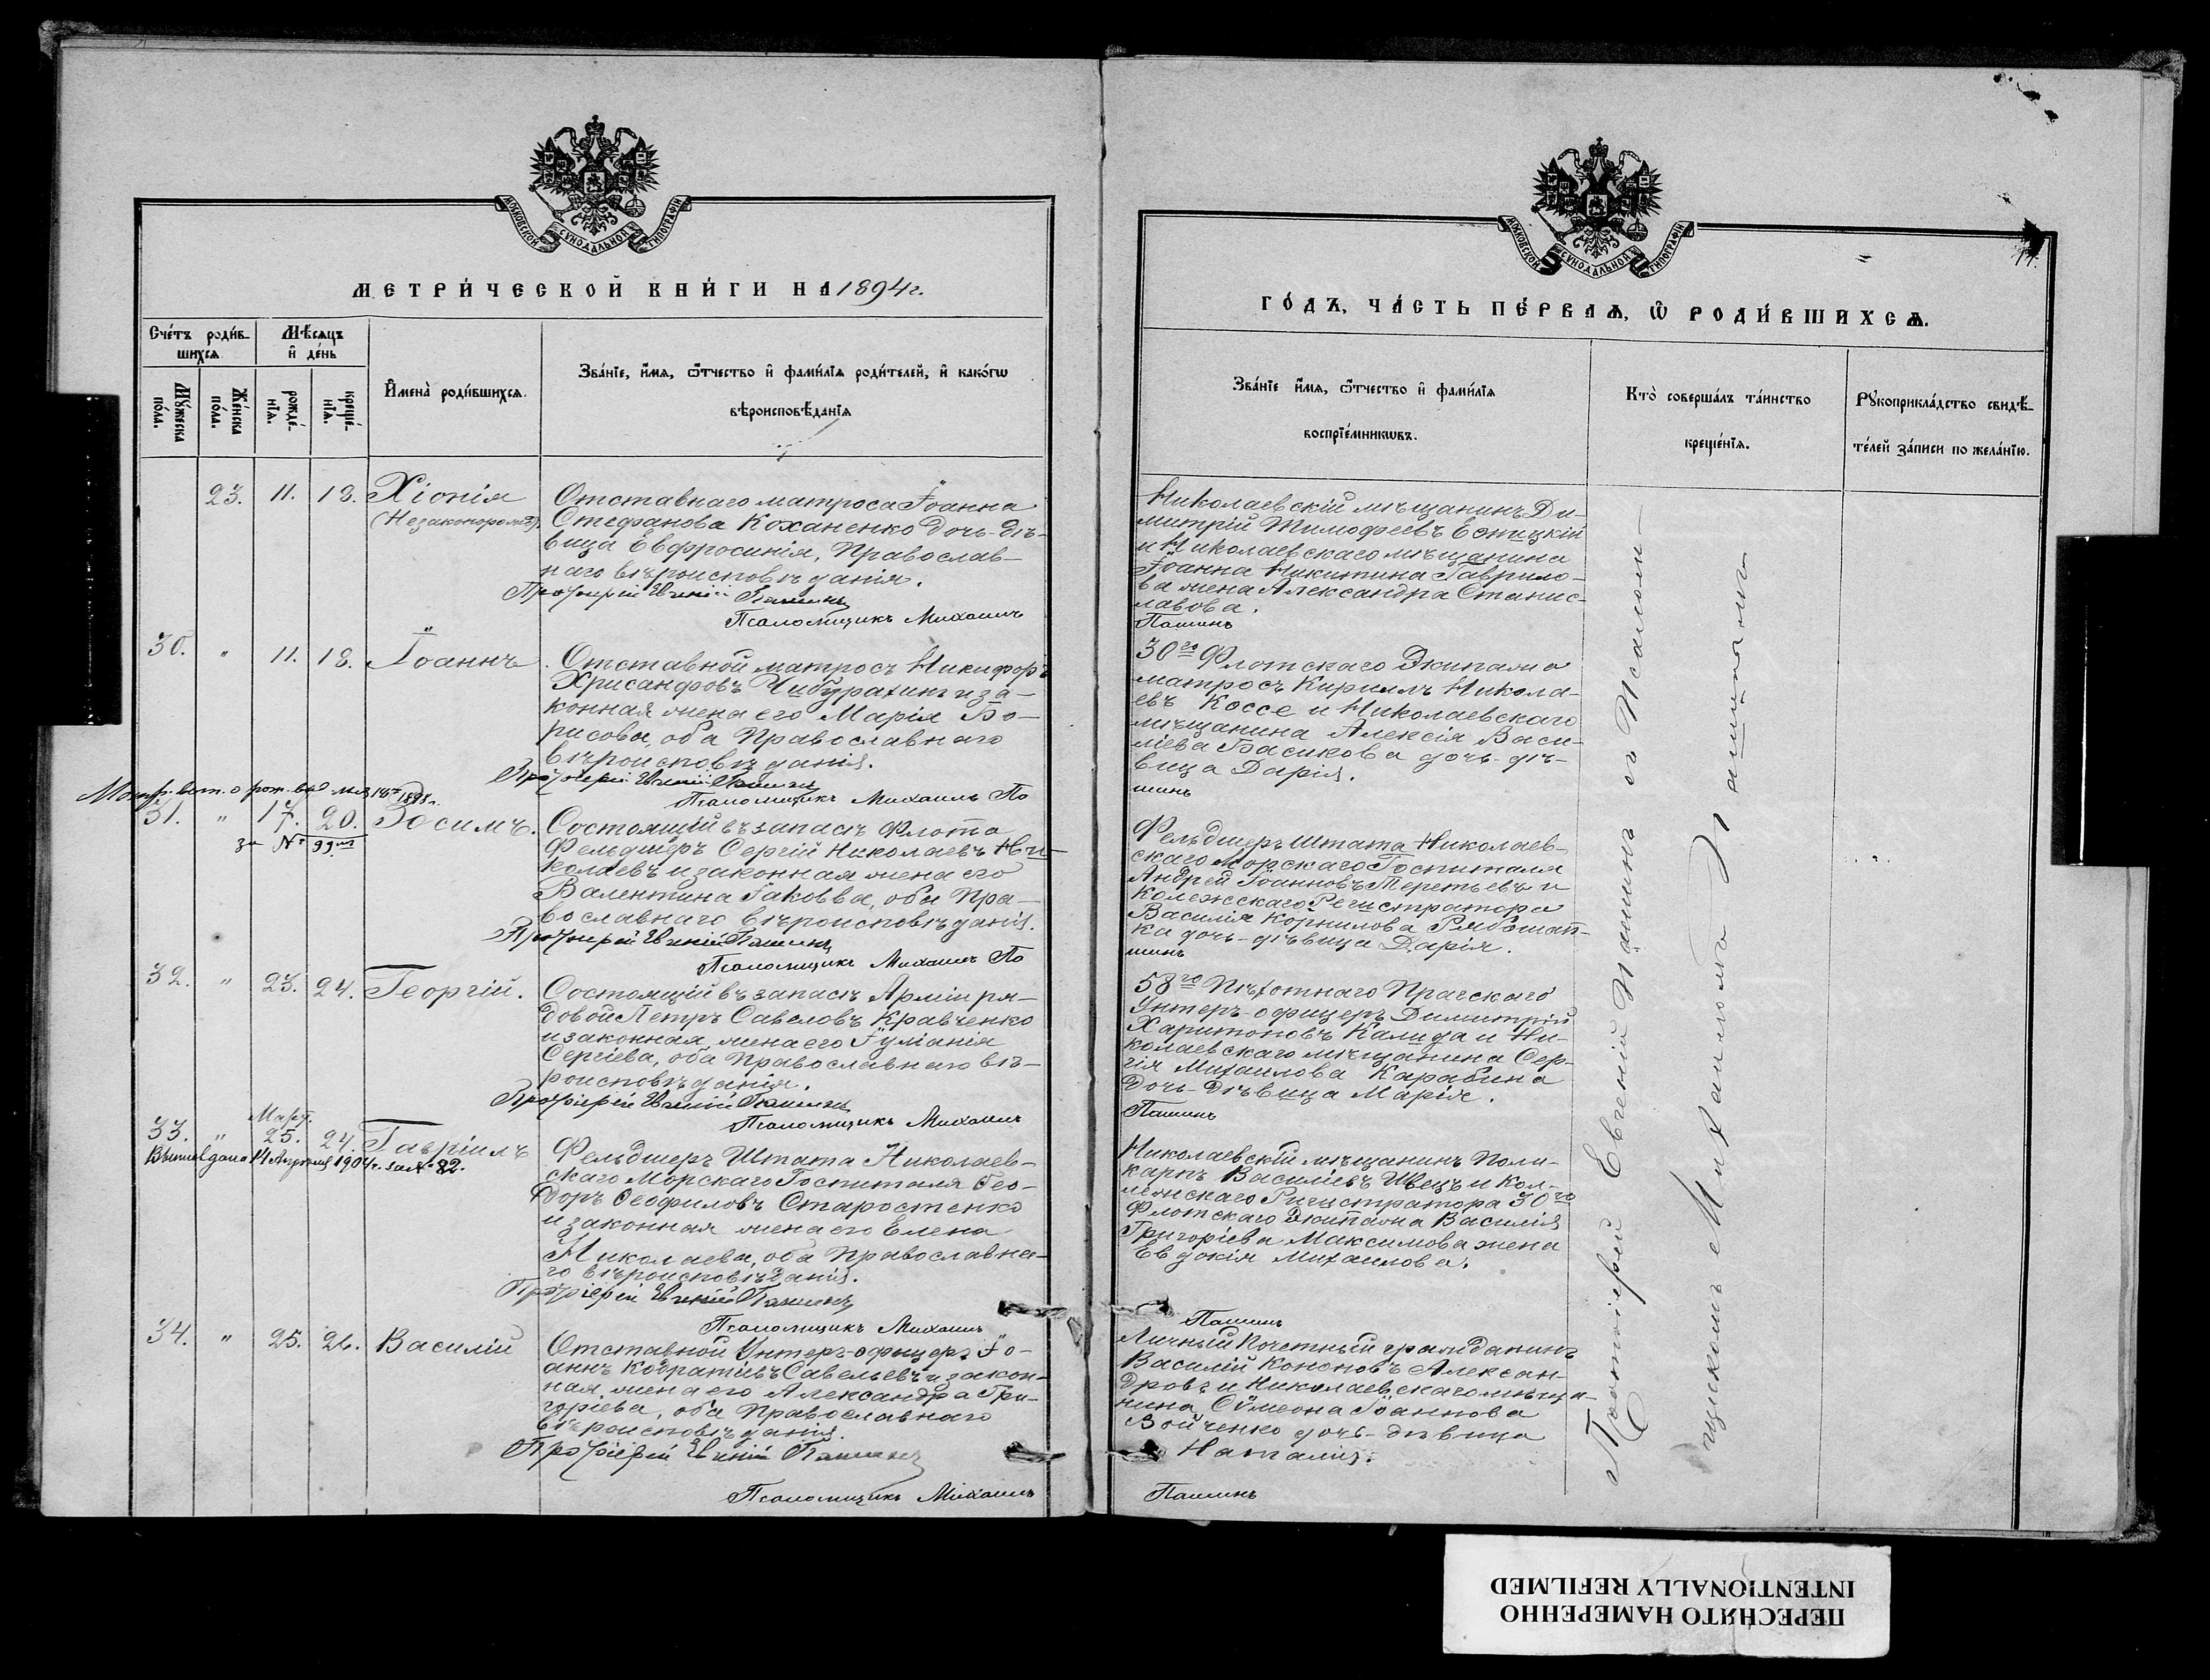 МОСКОВСКОЙ СУНОДАЛЬНОЙ ТИПОГРАФІИ
МЕТРИ́ЧЕСКОЙ КНИ́ГИ НА 1894 г.
Сче́тъ роди́в-
шихся
Мѣ́сяцъ
и҆ де́нь
Мꙋ́жеска
по́ла.
Же́нска
по́ла.
рожде́-
нїѧ.
креще́-
нїѧ.
И҆мена̀ роди́вшихсѧ.
Зва́нїе, и҆́мѧ, ѻ҆́тчество и҆ фами́лїѧ роди́телей, и҆ како́гѡ
вѣроисповѣ́данїѧ
23. 11. 18. Хіонія
(Незаконорожд.)
Отставнаго матроса Іоанна
Стефанова Коханенко дочь-дѣ-
вица Евфросинія, Православ-
наго вѣроисповѣданія.
Протоіерей Евгеній Пашинъ
Псаломщикъ Михаилъ
30. " 11. 18. Іоаннъ.
Отставной матросъ Никифоръ
Хрисанфовъ Чибурахинъ и за-
конная жена его Марія Бо-
рисова, оба Православнаго
вѣроисповѣданія.
Протоіерей Евгеній Пашинъ
Псаломщикъ Михаилъ Па
31. " 17. 20. Зосимъ.
за № 99
Состоящій въ запасѣ Флота
Фельдшеръ Сергій Николаевъ Ни-
колаевъ и законная жена его
Валентина Іаковва, оба Пра-
вославнаго вѣроисповѣданія.
Протоіерей Евгеній Пашинъ
Псаломщикъ Михаилъ Па
32. " 23. 24. Георгій.
Состоящій въ запасѣ Арміи ря-
довой Петръ Савеловъ Кравченко
и законная жена его Іуліанія
Сергіева, оба Православнаго вѣ-
роисповѣданія.
Протоіерей Евгеній Пашинъ
Псаломщикъ Михаилъ
Март.
33. " 25. 24. Гавріилъ
Выпис. дана 14 Апрѣля 1904 г. за № 82.
Фельдшеръ Штата Николаев-
скаго Морскаго Госпиталя Ѳео-
доръ Ѳеофиловъ Старостенко
и законная жена его Елена
Николаева, оба Православна-
го вѣроисповѣданія.
Протоіерей Евгеній Пашинъ
Псаломщикъ Михаилъ
34. " 25. 26. Василій
Отставной Унтеръ-офицеръ Іо-
аннъ Кодратіевъ Савельевъ и закон-
ная жена его Александра Гри-
горіева, оба Православнаго
вѣроисповѣданія.
Протоіерей Евгеній Пашинъ
Псаломщикъ Михаилъ
МОСКОВСКОЙ СУНОДАЛЬНОЙ ТИПОГРАФІИ
ГО́ДЪ, ЧА́СТЬ ПЕ́РВАѦ, Ѡ҆ РОДИ́ВШИХСѦ.
Зва́нїе и҆́мѧ, ѻ҆́тчество и҆ фами́лїѧ
воспрїе́мникѡвъ.
Кто̀ соверша́лъ та́инство
креще́нїѧ.
Рꙋкоприкла́дство свидѣ́-
телей за́писи по жела́нїю.
Николаевскій мѣщанинъ Ди-
митрій Тимофеевъ Естицкій
и Николаевскаго мѣщанина
Іоанна Никитина Гаврило-
ва жена Александра Станис-
лавова.
Пашинъ
30го Флотскаго Экипажа
матросъ Кириллъ Никола-
евъ Коссе и Николаевскаго
мѣщанина Алексія Васи-
ліева Басикова дочь-дѣ-
вица Дарія.
шинъ
Фельдшеръ Штата Николаев-
скаго Морскаго Госпиталя
Андрей Іоанновъ Теретьевъ и
Колежскаго Регистратора
Василія Корнилова Рябошап-
ка дочь-дѣвица Дарія.
шинъ
58го Пѣхотнаго Прагскаго
Унтеръ-офицеръ Димитрій
Харитоновъ Калида и Ни-
колаевскаго мѣщанина Сер-
гія Михаилова Карабина
дочь-дѣвица Марія.
Пашинъ
Николаевскій мѣщанинъ Поли-
карпъ Василіевъ Швецъ и Кол-
лежскаго Регистратора 30го
Флотскаго Экипажа Василія
Григоріева Максимова жена
Евдокія Михаилова.
Пашинъ
Личный Почетный гражданинъ
Василій Кононовъ Алексан-
дровъ и Николаевскаго мѣща-
нина Сѵмеона Іоаннова
Войченко дочь-дѣвица
Наталія.
Пашинъ
Протоіерей Евгеній Пашинъ съ Псалом-
щикомъ Михаиломъ Пашинымъ
ПЕРЕСНЯТО НАМЕРЕННО
INTENTIONALLY REFILMED